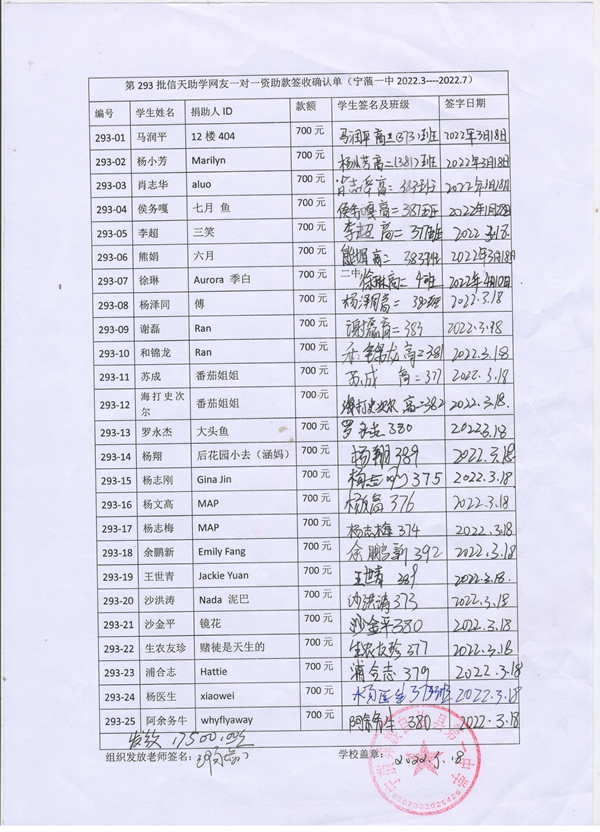 第 293 批信天助学网友一对一资助款签收确认单（宁蒗一中 2022.3----2022.7）
编号 学生姓名 捐助人 ID 款额 学生签名及班级 签字日期
293-01 马润平 12 楼 404 700 元 马润平 高二(373)班 2022年3月18日
293-02 杨小芳 Marilyn 700 元 杨小芳 高二(381)班 2022年3月18日
293-03 肖志华 aluo 700 元 肖志华 高二 383班
293-04 侯务嘎 七月 鱼 700 元 侯务嘎 高二 387班
293-05 李超 三笑 700 元 李超 高二 377班 2022.3.18.
293-06 熊娟 六月 700 元 熊娟 高二 383班 2022年3月18日
293-07 徐琳 Aurora 季白 700 元 二中 徐琳 高二 4班 2022年4月10日
293-08 杨泽同 傅 700 元 杨泽同 高二 380班 2022.3.18
293-09 谢磊 Ran 700 元 谢磊 高二 383 2022.3.18
293-10 和锦龙 Ran 700 元 和锦龙 高二 381 2022.3.18
293-11 苏成 番茄姐姐 700 元 苏成 高二 377 2022.3.18
293-12 海打史次尔 番茄姐姐 700 元 海打史次尔 高二 382 2022.3.18
293-13 罗永杰 大头鱼 700 元 罗永杰 380 2022.3.18
293-14 杨翔 后花园小去（涵妈） 700 元 杨翔 389 2022.3.18
293-15 杨志刚 Gina Jin 700 元 杨志刚 375 2022.3.18
293-16 杨文高 MAP 700 元 杨文高 376 2022.3.18
293-17 杨志梅 MAP 700 元 杨志梅 374 2022.3.18
293-18 余鹏新 Emily Fang 700 元 余鹏新 392 2022.3.18
293-19 王世青 Jackie Yuan 700 元 王世青 389 2022.3.18.
293-20 沙洪涛 Nada 泥巴 700 元 沙洪涛 373 2022.3.18
293-21 沙金平 镜花 700 元 沙金平 380 2022.3.18
293-22 生农友珍 赌徒是天生的 700 元 生农友珍 377 2022.3.18
293-23 浦合志 Hattie 700 元 浦合志 379 2022.3.18
293-24 杨医生 xiaowei 700 元 杨医生 2022.3.18
293-25 阿余务牛 whyflyaway 700 元 阿余务牛 380 2022.3.18
发款 17500.00元
组织发放老师签名： 学校盖章： 2022.5.18